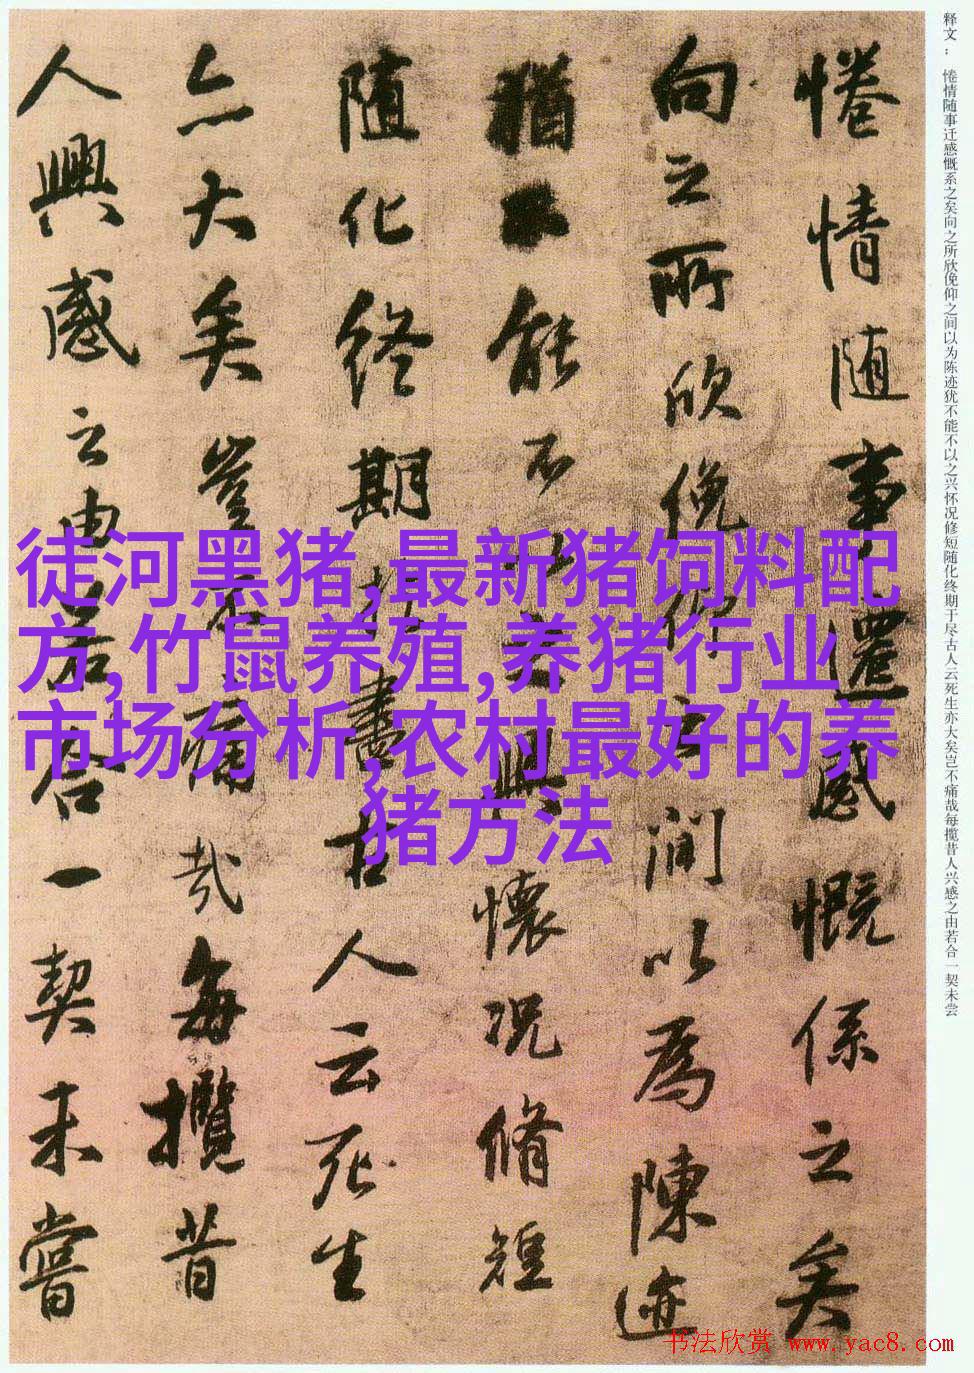 释文：惓情随事迁感慨系之矣向之所欣俛仰之间以为陈迹犹不能不以之兴怀况修短随化终期于尽古人云死生亦大矣岂不痛哉每揽昔人兴感之由若合一契未尝
惓情随事遷感慨係之矣
向之所欣俛仰之間以為陳迹
猶不能不以之興懷况脩短
随化終期於盡古人云死生
亦大矣豈不痛哉每攬昔
人興感之由若合一契未嘗
徒河黑猪,最新猪饲料配
方,竹鼠养殖,养猪行业
市场分析,农村最好的养
猪方法
书法欣赏 www.yac8.com